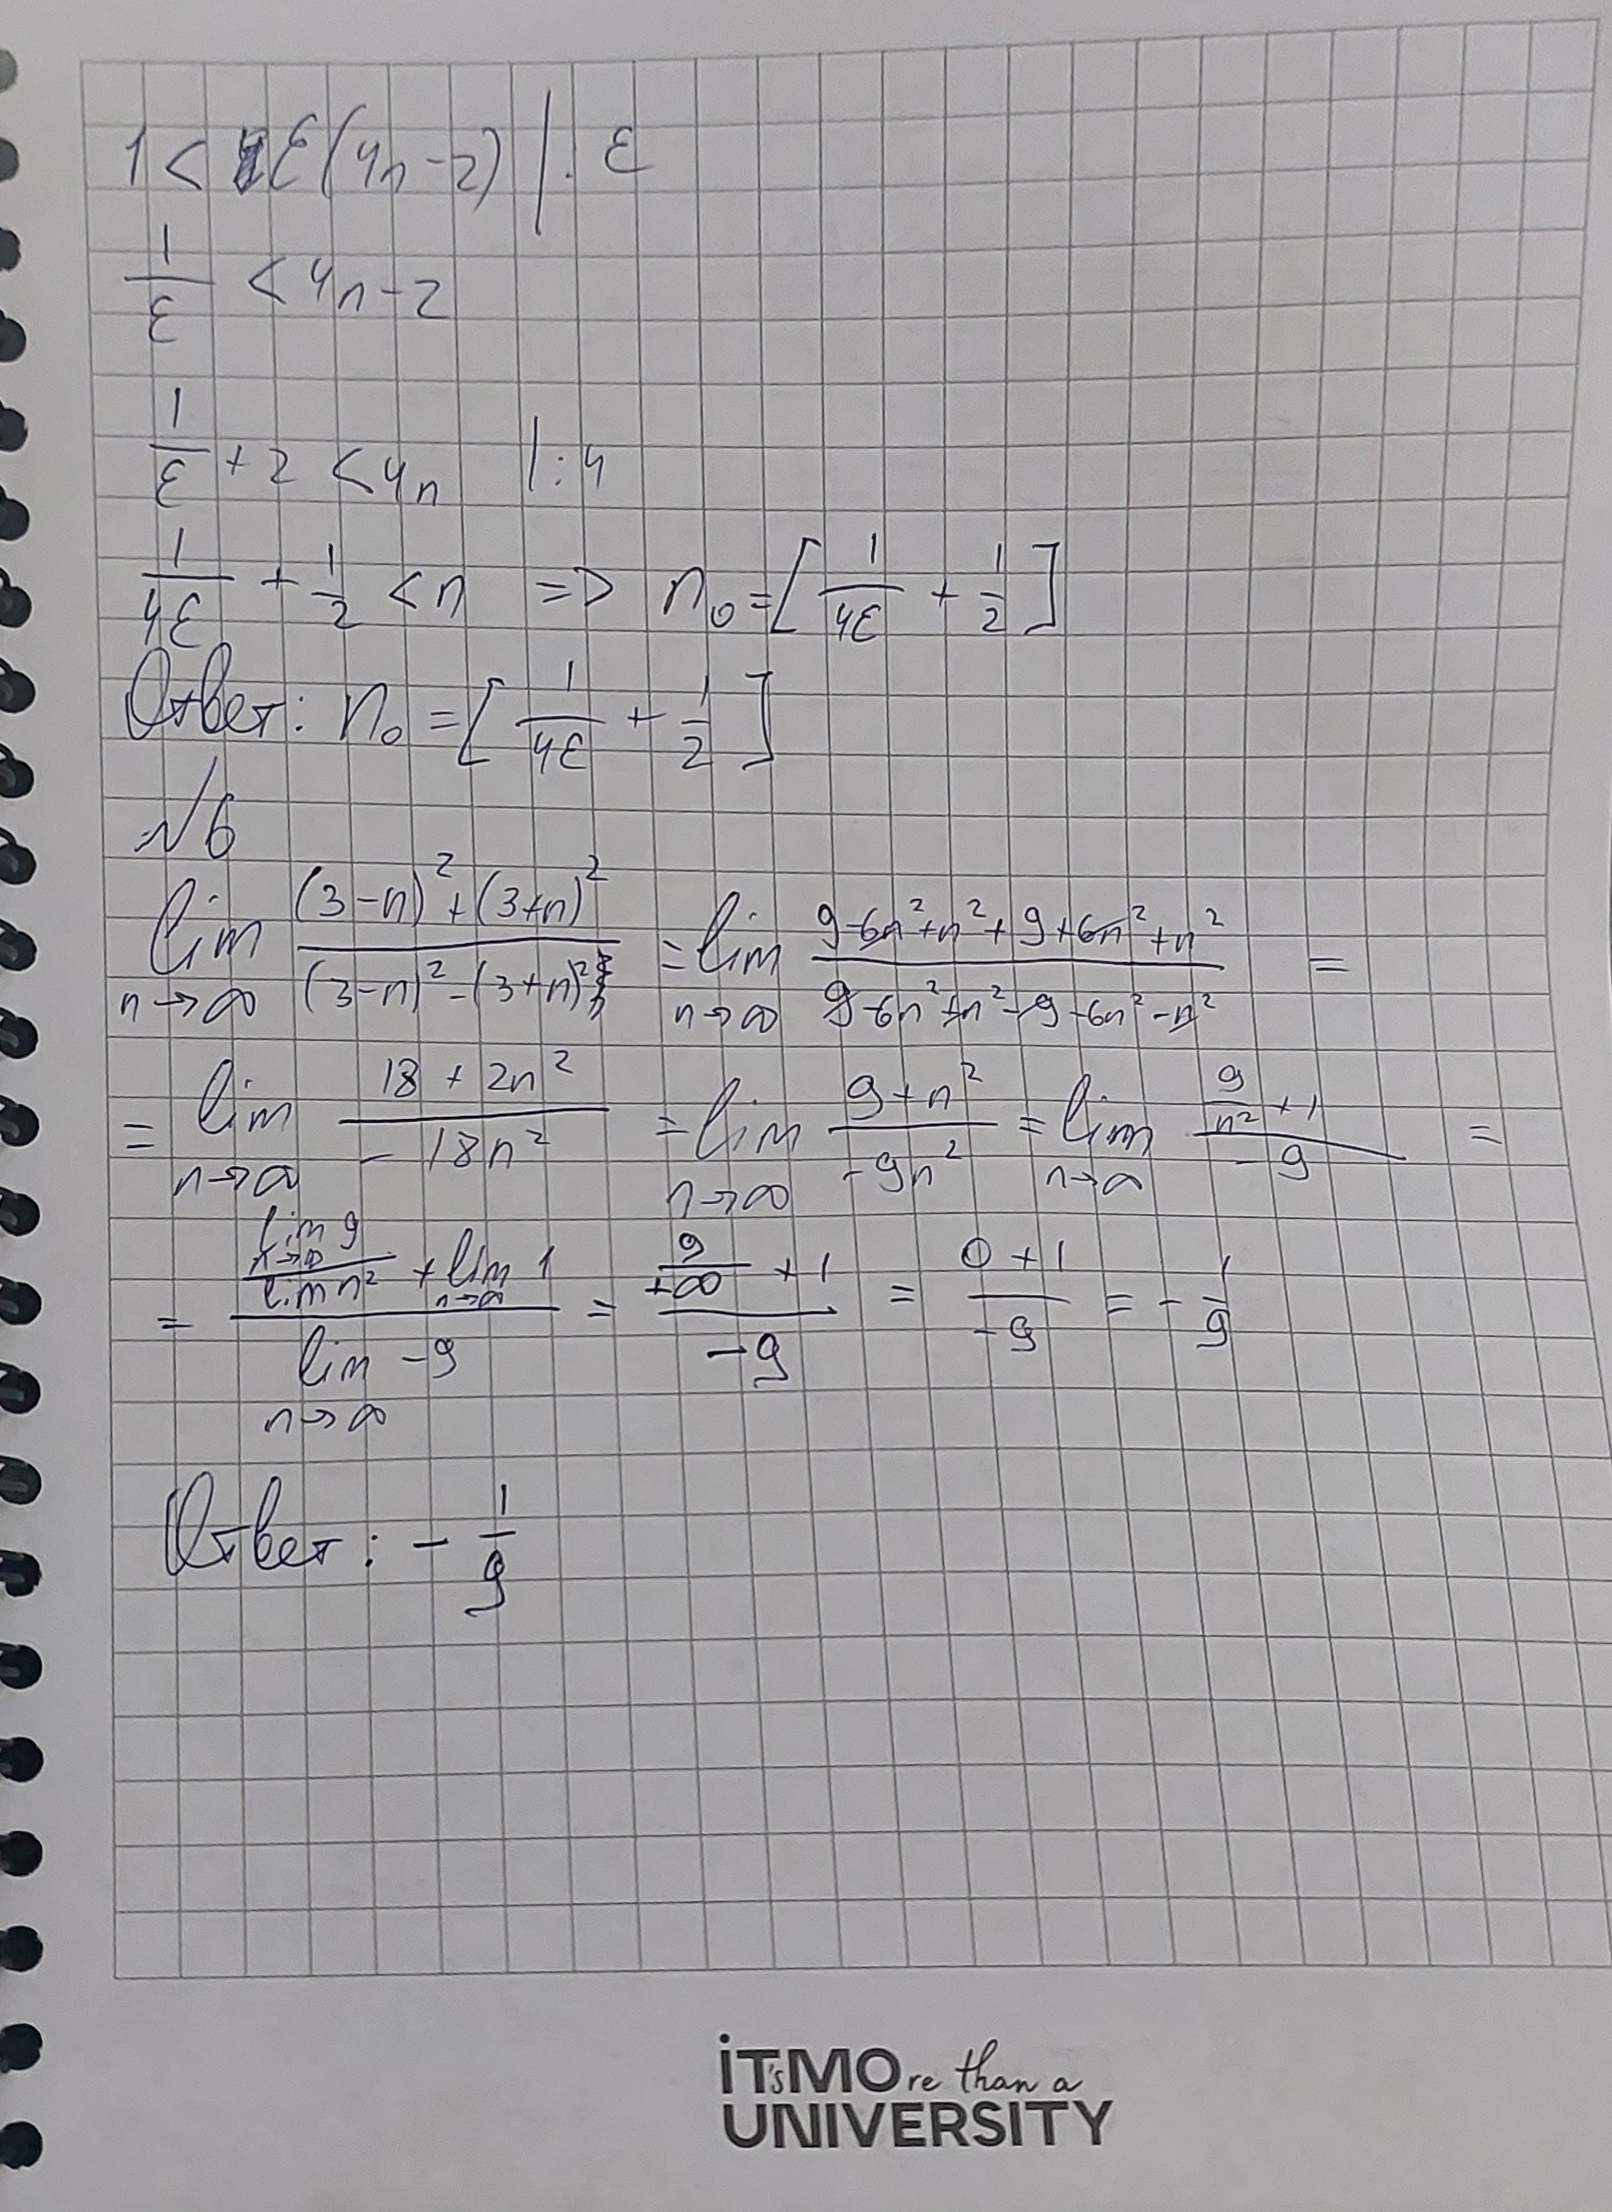 1 < ε(4n-2) | : ε
1/ε < 4n-2
1/ε + 2 < 4n |:4
1/4ε + 1/2 < n => n₀ = [1/4ε + 1/2]
Ответ: n₀ = [1/4ε + 1/2]
№6
lim n→∞ ((3-n)² + (3+n)²)/((3-n)² - (3+n)²) = lim n→∞ (9-6n²+n²+9+6n²+n²)/(9-6n²+n²-9-6n²-n²) =
= lim n→∞ (18+2n²)/(-18n²) = lim n→∞ (9+n²)/(-9n²) = lim n→∞ (9/n² + 1)/(-9) =
= (lim n→∞ 9/lim n² + lim n→∞ 1)/(lim n→∞ -9) = (9/+∞ + 1)/(-9) = (0+1)/(-9) = -1/9
Ответ: -1/9
iT'sMOre than a
UNIVERSITY